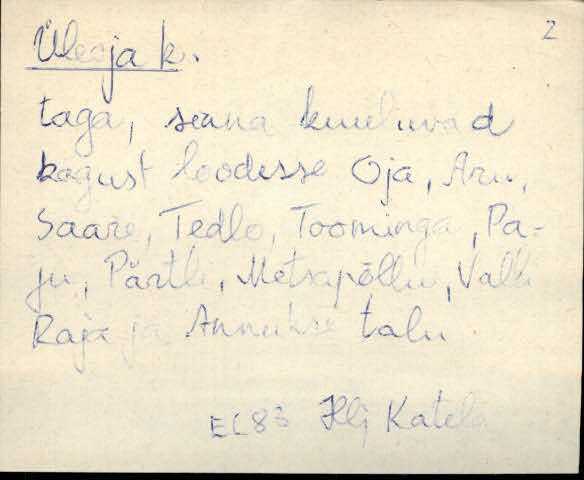 2
Üleoja k.
taga, senna kuuluvad
kagust loodesse Oja, Aru,
Saare, Tedlo, Toominga, Pa-
ju, Pärtli, Metsapõllu, Valli
Raja ja Annukse talu.
EL83 Katela